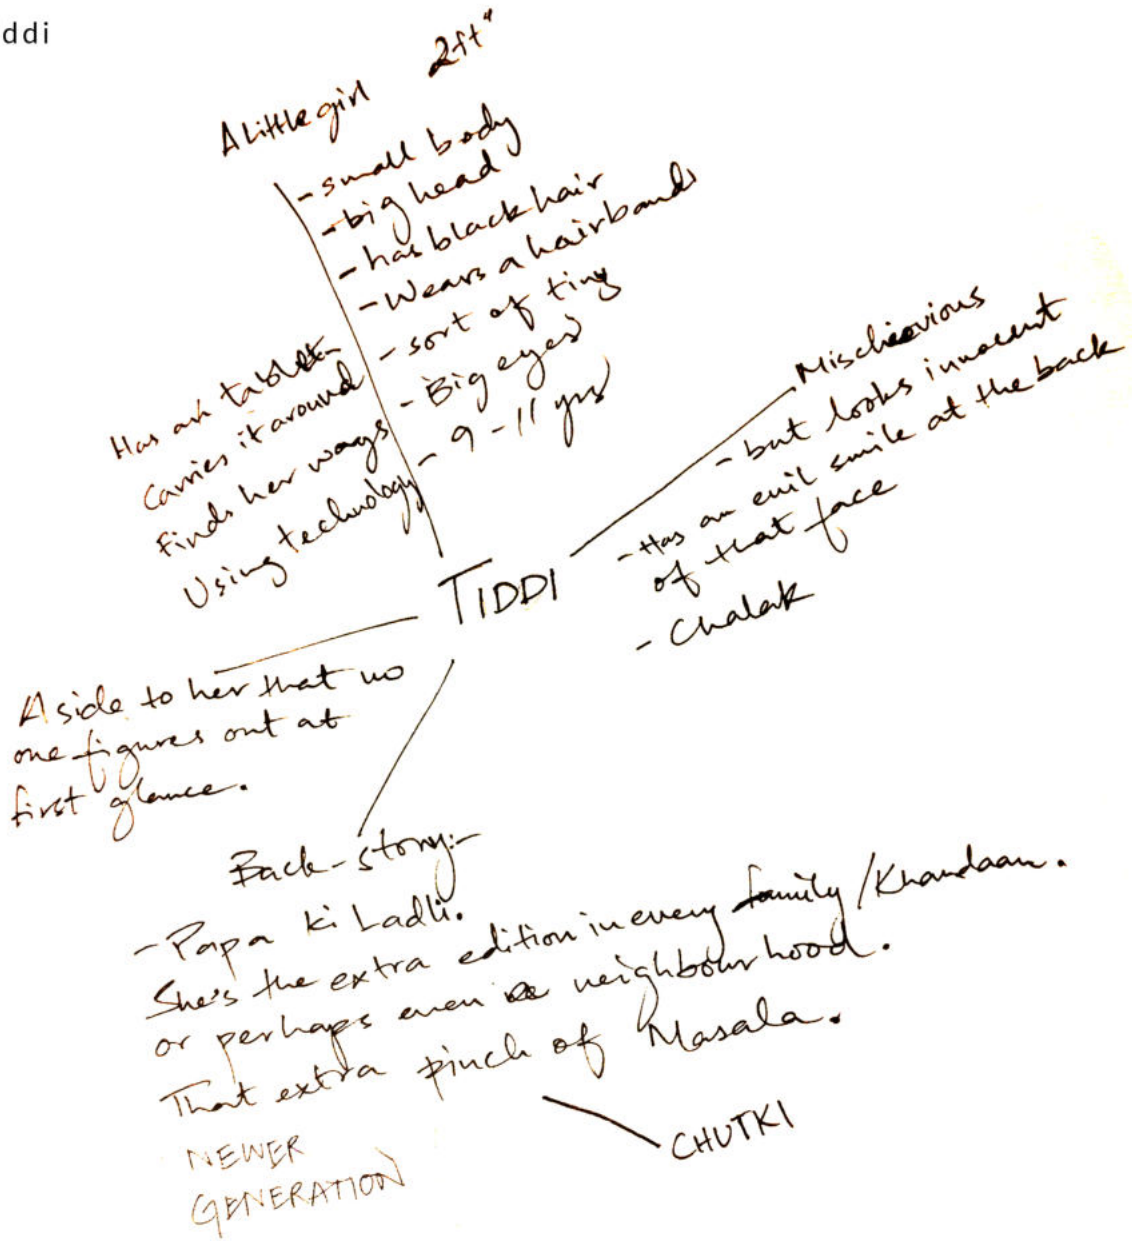 ddi
A little girl 2ft"
- small body
- big head
- has black hair
- Wears a hairband
- sort of tiny
- Big eyes
- 9-11 yrs
Has an tablet-
Carries it around
Finds her ways
Using technology
Mischievious
- but looks innocent
- Has an evil smile at the back
of that face
- Chalak
TIDDI
A side to her that no
one figures out at
first glance.
Back-story:-
- Papa ki Ladli.
She's the extra edition in every family/Khandaan.
or perhaps even neighbourhood.
That extra pinch of Masala.
CHUTKI
NEWER
GENERATION